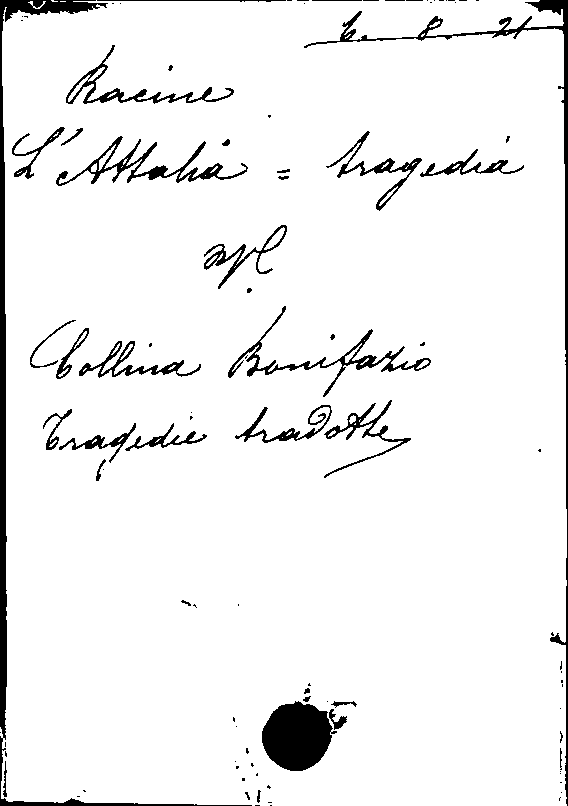 6. 8. 21
Racine
L'Attalia = tragedia
Collina Bonifazio
Tragedie tradotte